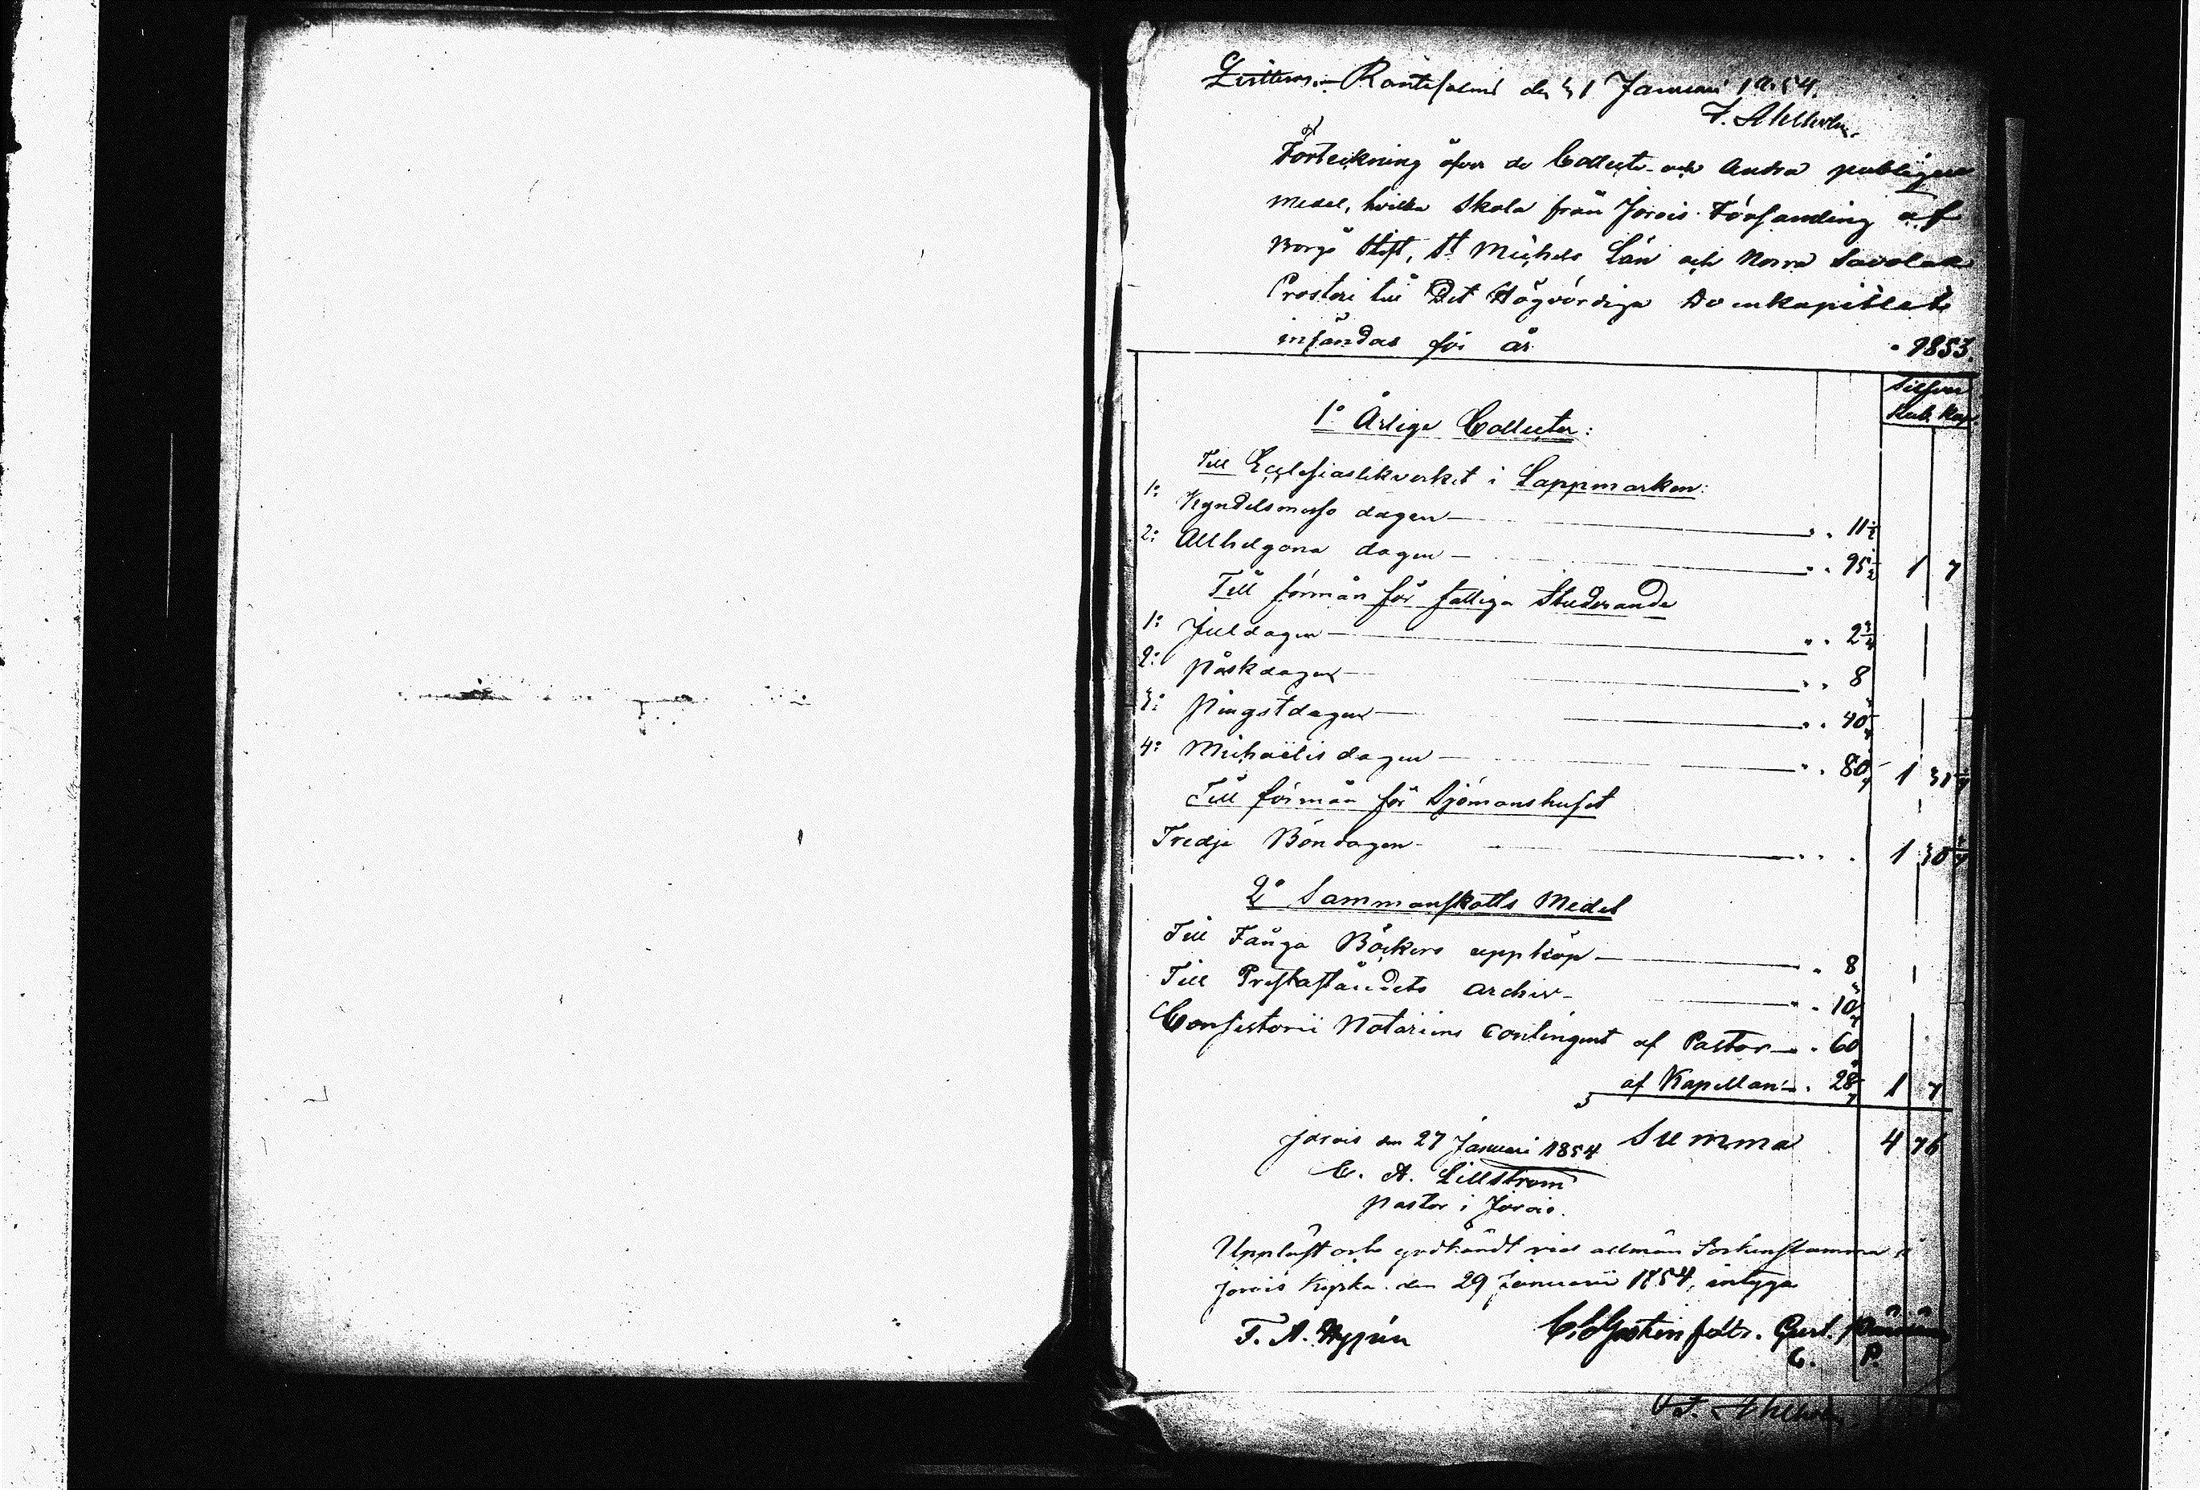 Qvitteras. Rantasalmi den 31 Januari 1854.
Förteckning öfver de Collect- och Andra publique
medel, hvilka skola från Jorois Församling af
Borgå Stift, St Michels Län och Norra Savolax
Prosteri till Det Högvördiga Domkapitlet
insändas för år 1853.
Silfver
Rub. Kop.
1° Årlige Collecter:
Till Ecclesiastikverket i Lappmarken:
1: Kyndelsmesso dagen — " " 11½
2: Allhelgona dagen — " " 95½ 1 7
Till förmån för fattiga Studerande
1: Juldagen — " " 2¾
2: Påskdagen — " " 8
3: Pingstdagen — " " 40
4: Michaëlis dagen — " " 80 1 31
Till förmån för Sjömanshuset
Tredje Böndagen — " " 1 30
2° Sammanskotts Medel
Till Fånga Böckers uppköp — " 8
Till Preståståndets archiv — " 10
Consistorii Notariens Contingent af Pastor — " 60
af Kapellan — " 28 1 7
Jorois den 27 Januari 1854 Summa 4 76
C. A. Lillström
Pastor i Jorois.
Uppläst och godkändt vid allmän Sockenstämma i
Jorois Kyrka den 29 Januarii 1854, intyga